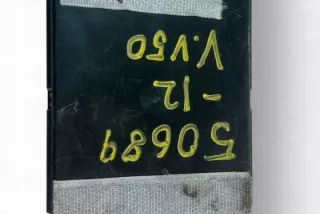 50689
-12
V.V50